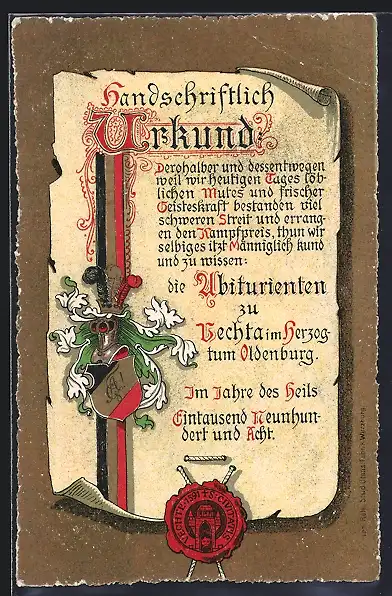 Handschriftlich
Urkund:
Derohalber und dessentwegen
weil wir heutigen Tages löb-
lichen Mutes und frischer
Geisteskraft bestanden viel
schweren Streit und errang-
en den Kampfpreis, thun wir
selbiges itzt Männiglich kund
und zu wissen:
die Abiturienten
zu
Vechta im Herzog-
tum Oldenburg.
Im Jahre des Heils
Eintausend Neunhun-
dert und Acht.